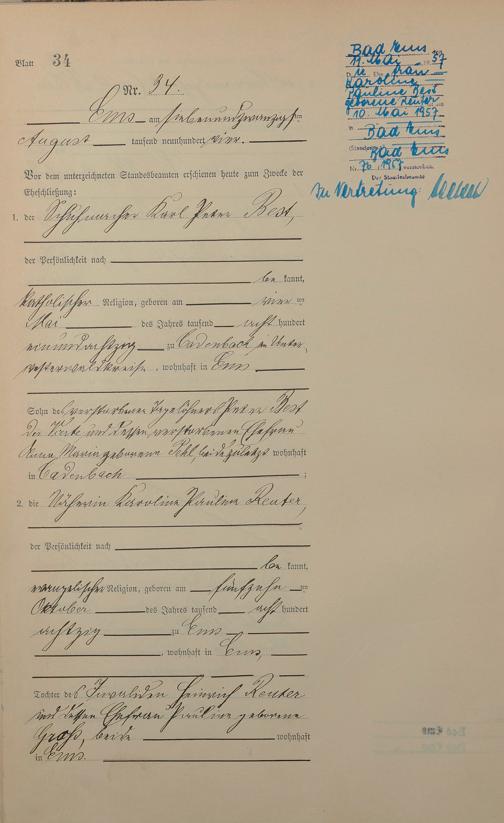 Blatt 34
Nr. 34.
Ems am siebenundzwanzigsten
August tausend neunhundert vier.
Vor dem unterzeichneten Standesbeamten erschienen heute zum Zwecke der
Eheschließung:
1. der Schuhmacher Karl Peter Best,
der Persönlichkeit nach
be kannt,
katholischer Religion, geboren am vier ten
Mai des Jahres tausend acht hundert
einundachtzig zu Cadenbach, im Unter-
westerwaldkreise, wohnhaft in Ems
Sohn des verstorbenen Tagelöhners Peter Best
und dessen verstorbenen Ehefrau
Anna Maria geborene beide zuletzt wohnhaft
in Cadenbach ;
2. die Näherin Karoline Pauline Reuter,
der Persönlichkeit nach
be kannt,
evangelischer Religion, geboren am fünfzehn ten
Oktober des Jahres tausend acht hundert
achtzig zu Ems
, wohnhaft in Ems,
Tochter des Invaliden Heinrich Reuter
und dessen Ehefrau Pauline geborene
Groß, beide wohnhaft
in Ems.
Bad Ems
11. Mai 1957
Karoline
Pauline Best
geborene Reuter
10. Mai 1957
in Bad Ems
Bad Ems
Nr. 76/1957
Der Standesbeamte
In Vertretung: